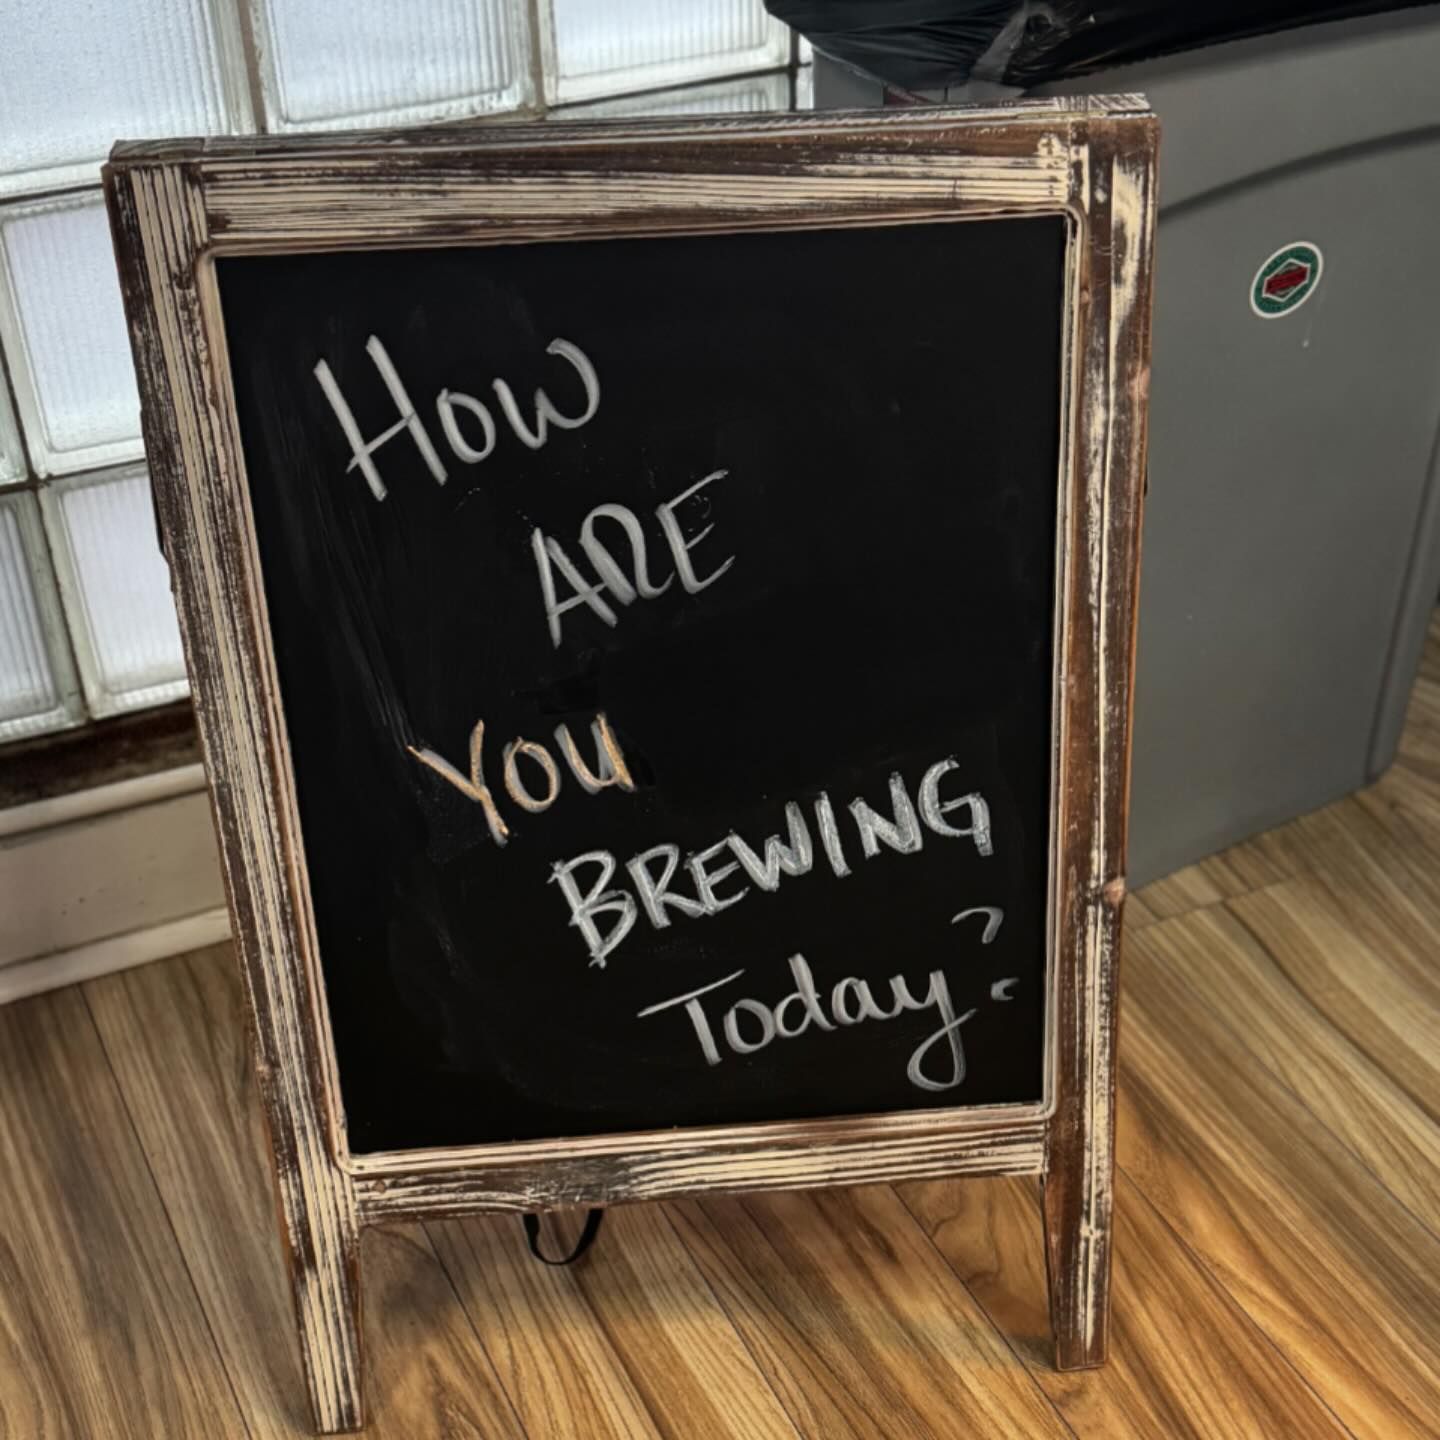 How
ARE
You
BREWING
Today?